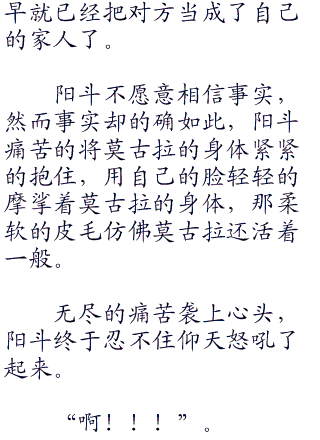 早就已经把对方当成了自己
的家人了。
阳斗不愿意相信事实，
然而事实却的确如此，阳斗
痛苦的将莫古拉的身体紧紧
的抱住，用自己的脸轻轻的
摩挲着莫古拉的身体，那柔
软的皮毛仿佛莫古拉还活着
一般。
无尽的痛苦袭上心头，
阳斗终于忍不住仰天怒吼了
起来。
“啊！！！”。